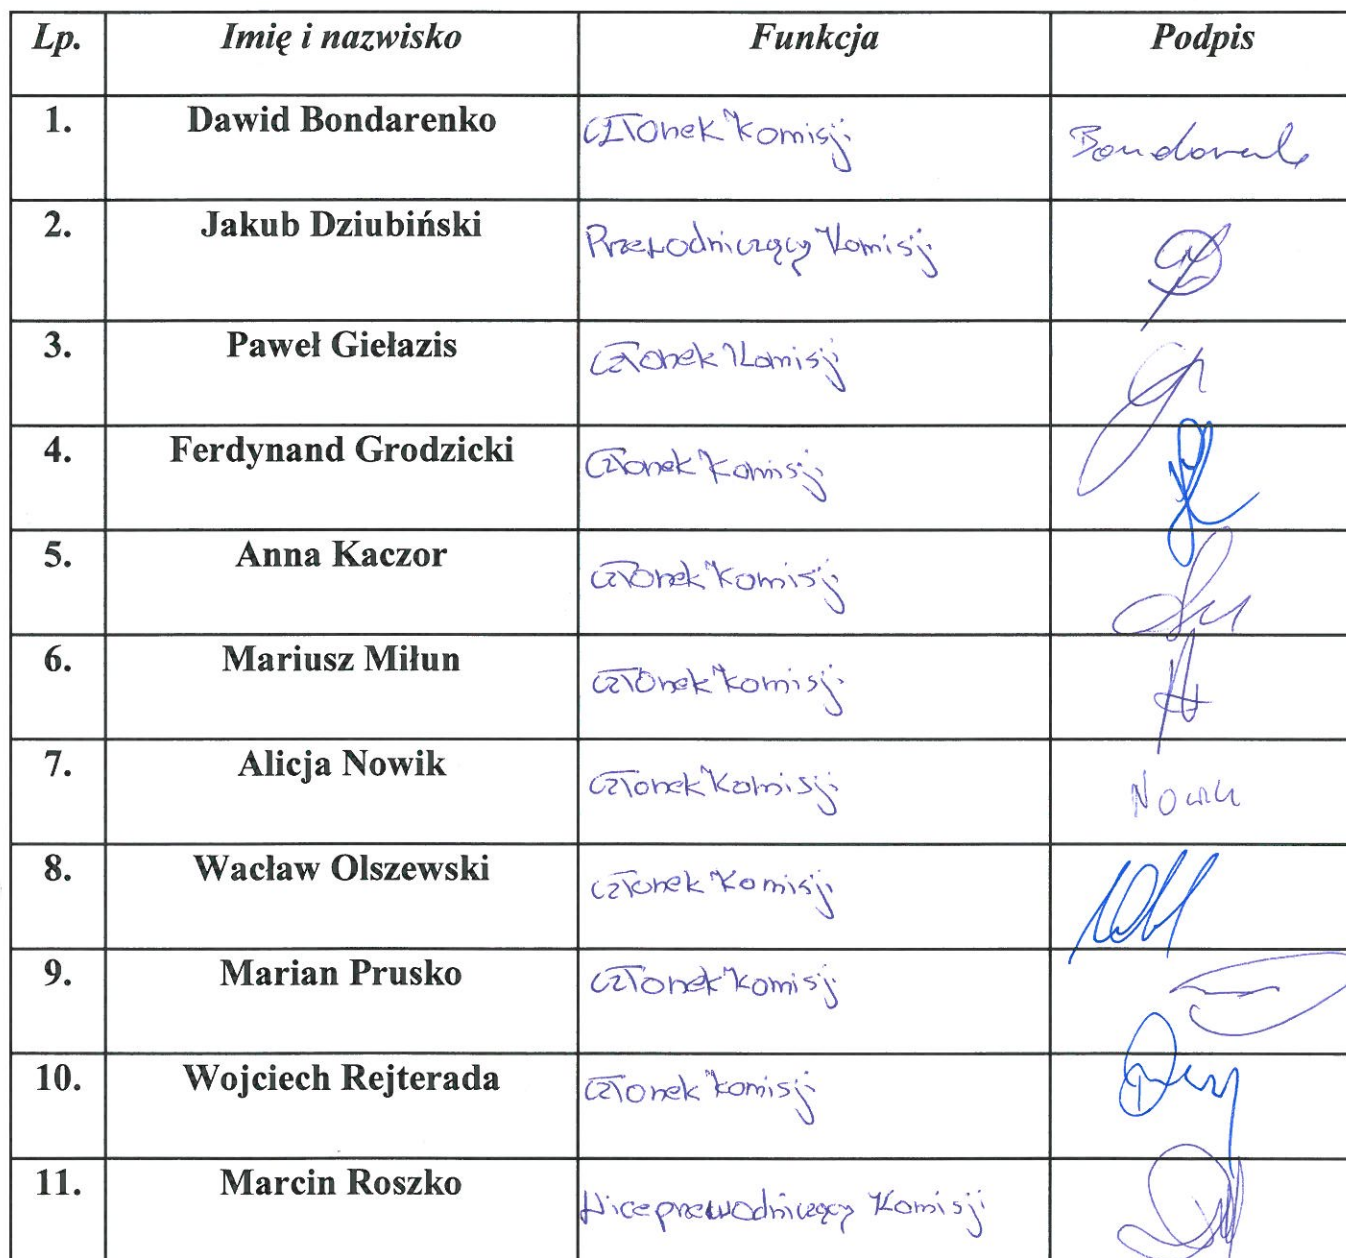 Lp. Imię i nazwisko Funkcja Podpis
1. Dawid Bondarenko Członek Komisji
2. Jakub Dziubiński Przewodniczący Komisji
3. Paweł Giełazis Członek Komisji
4. Ferdynand Grodzicki Członek Komisji
5. Anna Kaczor Członek Komisji
6. Mariusz Miłun Członek Komisji
7. Alicja Nowik Członek Komisji Nowik
8. Wacław Olszewski Członek Komisji
9. Marian Prusko Członek Komisji
10. Wojciech Rejterada Członek Komisji
11. Marcin Roszko Wiceprzewodniczący Komisji